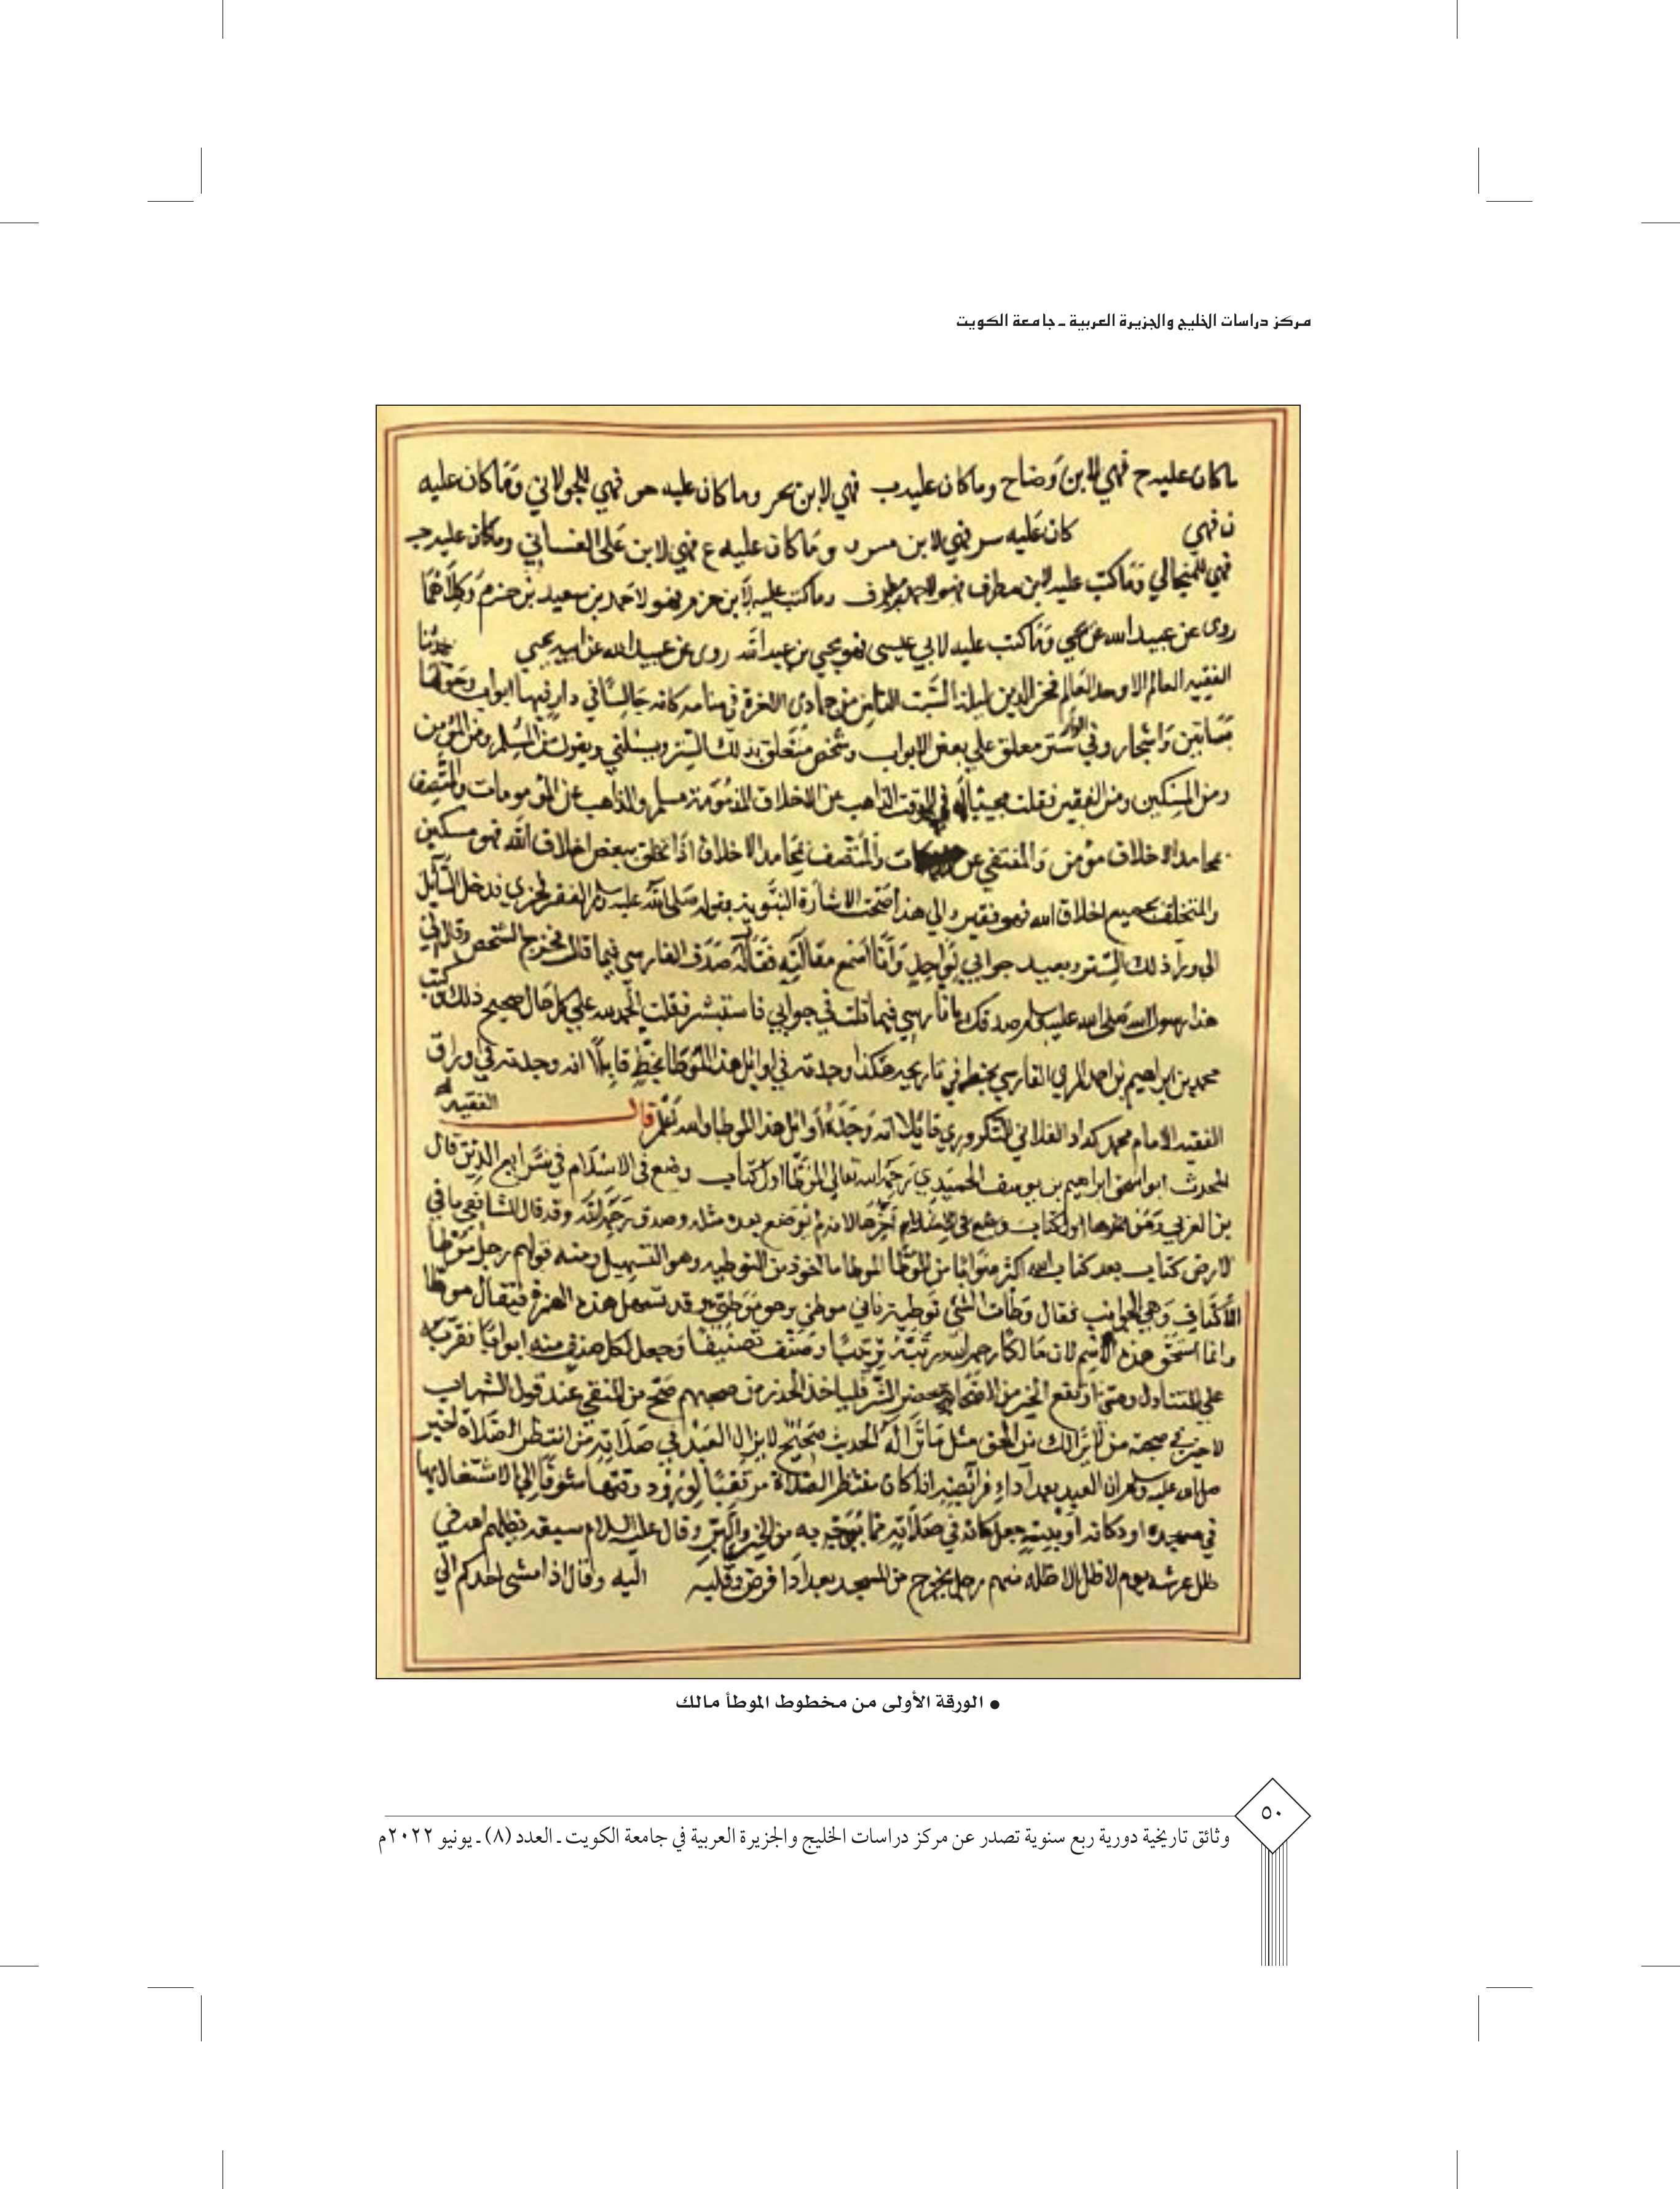 مركز دراسات الخليج والجزيرة العربية ـ جامعة الكويت
ما كان عليه ح فهي لابن وضاح وما كان عليه ب فهي لابن بحر وما كان عليه حو فهي للجولاني وما كان عليه
ن فهي كان عليه سر فهي لابن مسرور وما كان عليه ع فهي لابن على الغساني وما كان عليه ج
فهي للمنجالي وما كتب عليه لابن مطرف فهو لاحمد بن مطرف وما كتب عليه لابن حزم فهو لاحمد بن سعيد بن حزم وكلاهما
روى عن عبيد الله عن يحي وما كتب عليه لابي عيسى فهو يحيي بن عبد الله روى عن عبيد الله عن ابيه يحيي حدثنا
الفقيه العالم الاوحد العالم فخر الدين ليلة السبت الثامن من جمادى الاخرة في منامه كانه جالسا في دار فيها ابواب وحولها
بساتين واشجار وفي الدار ستر معلق علي بعض الابواب وشخص متعلق بذلك الستر ويسئلني ويقول من المسلم ومن المؤمن
ومن المسكين ومن الفقير فقلت مجيبا له في الوقت الذاهب عن الاخلاق المذمومة مسلم والذاهب عن المذمومات والمتصف
بمحامد الاخلاق مؤمن والمنتفي عن والمتصف بمحامد الاخلاق اذا تخلق ببعض اخلاق الله فهو مسكين
والمتخلق بجميع اخلاق الله فهو فقير والي هذا صحت الاشارة النبوية بقوله صلى الله عليه وسلم الفقر فخري فدخل السائل
الى وراء ذلك الستر ويعيد جوابي لواحد وانا اسمع مقالته فقال له صدق الفارسي فيما قال فخرج الشخص وقال لي
هذا رسول الله صلى الله عليه وسلم صدقك يا فارسي فيما قلت في جوابي فاستبشر فقلت الحمد لله علي كل حال صحيح ذلك وكتب
محمد بن ابراهيم بن احمد الفارسي بخطه في تاريخه هكذا وجدته في اوائل هذا الموطا بخط قايلا انه وجدته في اوراق
الفقيه الامام محمد الفلاني التكروري قائلا انه وجده اوائل هذا الموطا والله اعلم قال الفقيه
المحدث ابو اسحق ابراهيم بن يوسف الحميدي رحمه الله تعالى الموطا اول كتاب وضع في الاسلام في شرايع الدين قال
بن العربي ومن اخرها اول كتاب وضع في الاسلام اخرها لانه لم يوضع بعده مثله وصدق رحمه الله وقد قال الشافعي ما في
الارض كتاب بعد كتاب الله اكثر صوابا من الموطا الموطا ماخوذ من التوطيه وهو التسهيل ومنه قولهم رجل موطا
الاكناف وهي الجوانب فقال وطأت الشئ توطية فاني موطئ وهو موطئ وقد تسهل هذه الهمزة فيقال موطا
وانما استحق هذه الاسم لان مالكا رحمه الله رتبه ترتيبا وصنفه تصنيفا وجعل لكل منه ابوابا فقربه
علي المتناول ومتى ارتفع الخير من حضر الشر فلياخذ الحذر من صحبهم صح من المتقي عند قول الشهاب
لاخير في صحبة من لا يرى لك من الحق مثل ما ترى له الحديث صحيح لا يزال العبد في صلاة ما انتظر الصلاة اخبر
صلى الله عليه وسلم ان العبد بعد اداء فرائضه اذا كان منتظر الصلاة مرتقبا لورود وقتها مشوقا إلي الاشتغال بها
في مسجده او دكانه او بيته جعل كانه في صلاته مما يوجبه من الخير والبر وقال عليه السلام سبعة يظلهم الله في
ظل عرشه يوم لا ظل الا ظله منهم رجل يخرج من المسجد بعد اداء فرض وقلبه اليه وقال اذا مشى احدكم الي
● الورقة الأولى من مخطوط الموطأ مالك
٥٠
وثائق تاريخية دورية ربع سنوية تصدر عن مركز دراسات الخليج والجزيرة العربية في جامعة الكويت ـ العدد (٨) ـ يونيو ٢٠٢٢م